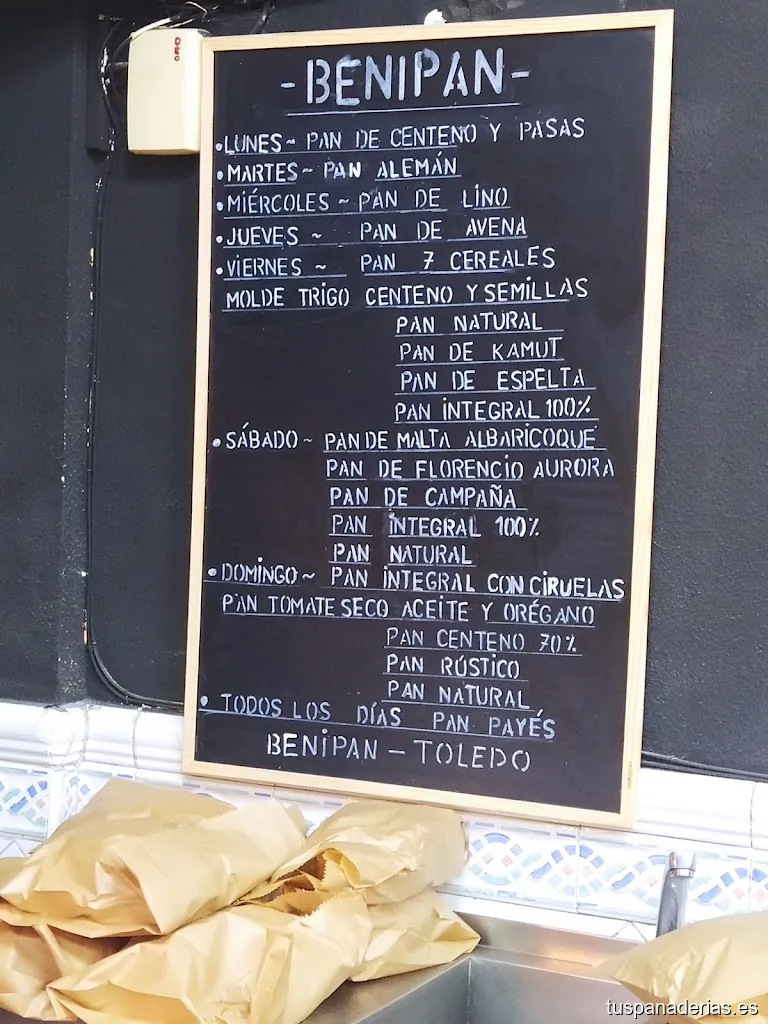 -BENIPAN-
•LUNES~ PAN DE CENTENO Y PASAS
•MARTES~ PAN ALEMÁN
•MIÉRCOLES ~ PAN DE LINO
•JUEVES ~ PAN DE AVENA
•VIERNES ~ PAN 7 CEREALES
MOLDE TRIGO CENTENO Y SEMILLAS
PAN NATURAL
PAN DE KAMUT
PAN DE ESPELTA
PAN INTEGRAL 100%
•SÁBADO ~ PAN DE MALTA ALBARICOQUE
PAN DE FLORENCIO AURORA
PAN DE CAMPAÑA
PAN INTEGRAL 100%
PAN NATURAL
•DOMINGO ~ PAN INTEGRAL CON CIRUELAS
PAN TOMATE SECO ACEITE Y ORÉGANO
PAN CENTENO 70%
PAN RÚSTICO
PAN NATURAL
• TODOS LOS DÍAS PAN PAYÉS
BENIPAN - TOLEDO
tuspanaderias.es